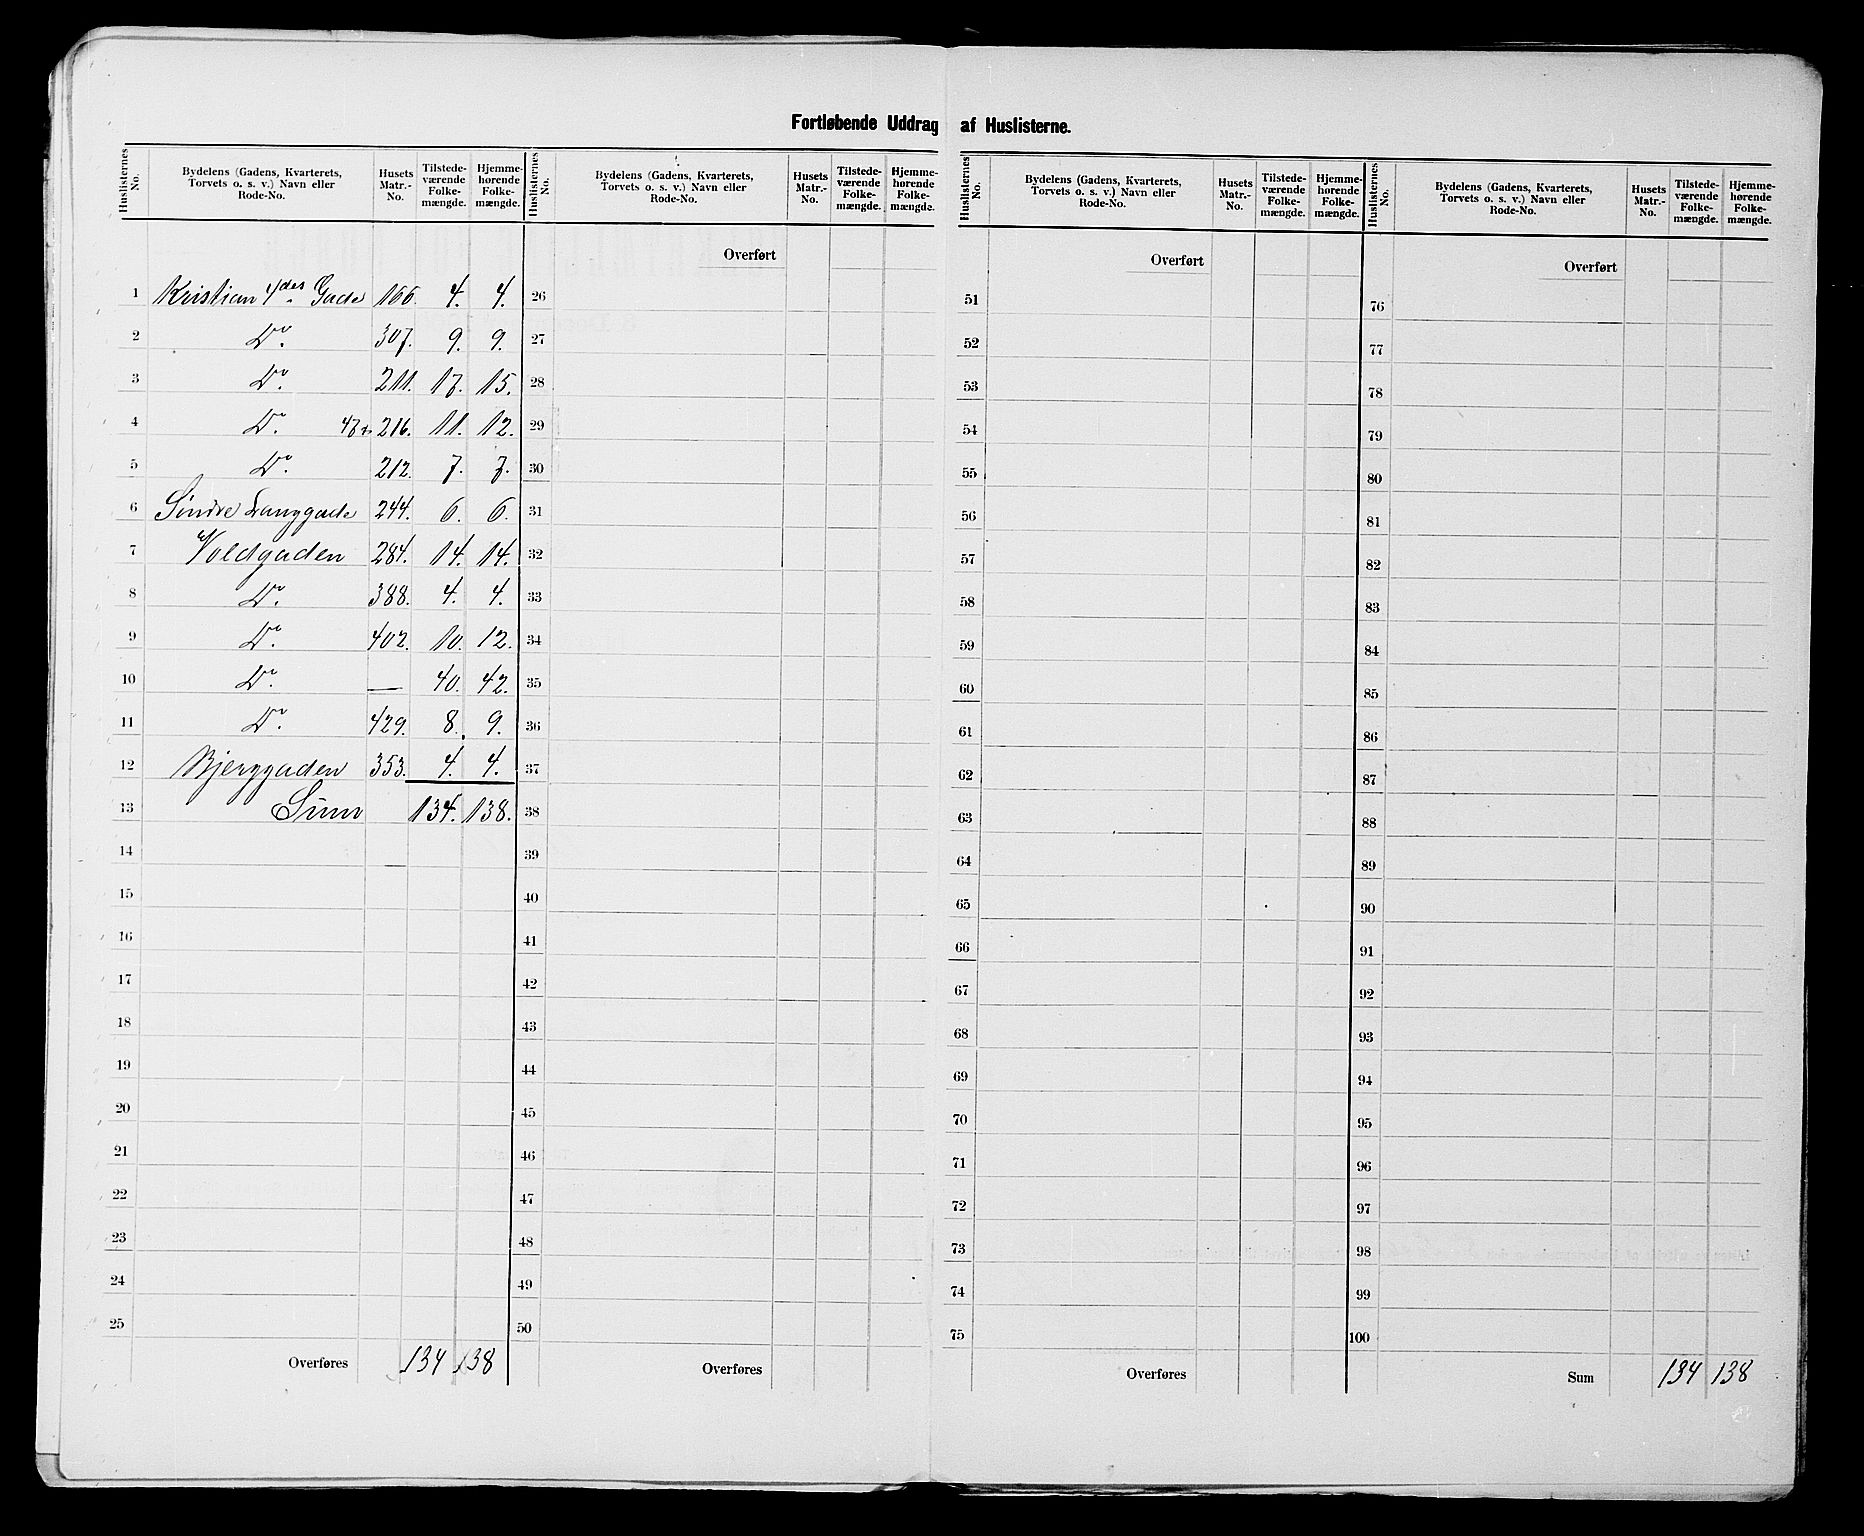 Fortløbende Uddrag af Huslisterne.
Huslisternes No. | Bydelens (Gadens, Kvarterets, Torvets o. s. v.) Navn eller Rode-No. | Husets Matr.-No. | Tilstede-værende Folke-mængde. | Hjemme-hørende Folke-mængde.
1 Kristian 4des Gade 166. 4. 4.
2 Do. 307. 9. 9.
3 Do. 211. 17. 15.
4 Do. 216. 11. 12.
5 Do. 212. 7. 7.
6 Søndre Langgade 244. 6. 6.
7 Voldgaden 284. 14. 14.
8 Do. 388. 4. 4.
9 Do. 402. 10. 12.
10 Do. — 40. 42.
11 Do. 429. 8. 9.
12 Bjerggaden 353. 4. 4.
13 Sum 134. 138.
14
15
16
17
18
19
20
21
22
23
24
25
Overføres 134 138
Huslisternes No. | Bydelens (Gadens, Kvarterets, Torvets o. s. v.) Navn eller Rode-No. | Husets Matr.-No. | Tilstede-værende Folke-mængde. | Hjemme-hørende Folke-mængde.
Overført
26
27
28
29
30
31
32
33
34
35
36
37
38
39
40
41
42
43
44
45
46
47
48
49
50
Overføres
Huslisternes No. | Bydelens (Gadens, Kvarterets, Torvets o. s. v.) Navn eller Rode-No. | Husets Matr.-No. | Tilstede-værende Folke-mængde. | Hjemme-hørende Folke-mængde.
Overført
51
52
53
54
55
56
57
58
59
60
61
62
63
64
65
66
67
68
69
70
71
72
73
74
75
Overføres
Huslisternes No. | Bydelens (Gadens, Kvarterets, Torvets o. s. v.) Navn eller Rode-No. | Husets Matr.-No. | Tilstede-værende Folke-mængde. | Hjemme-hørende Folke-mængde.
Overført
76
77
78
79
80
81
82
83
84
85
86
87
88
89
90
91
92
93
94
95
96
97
98
99
100
Sum 134 138